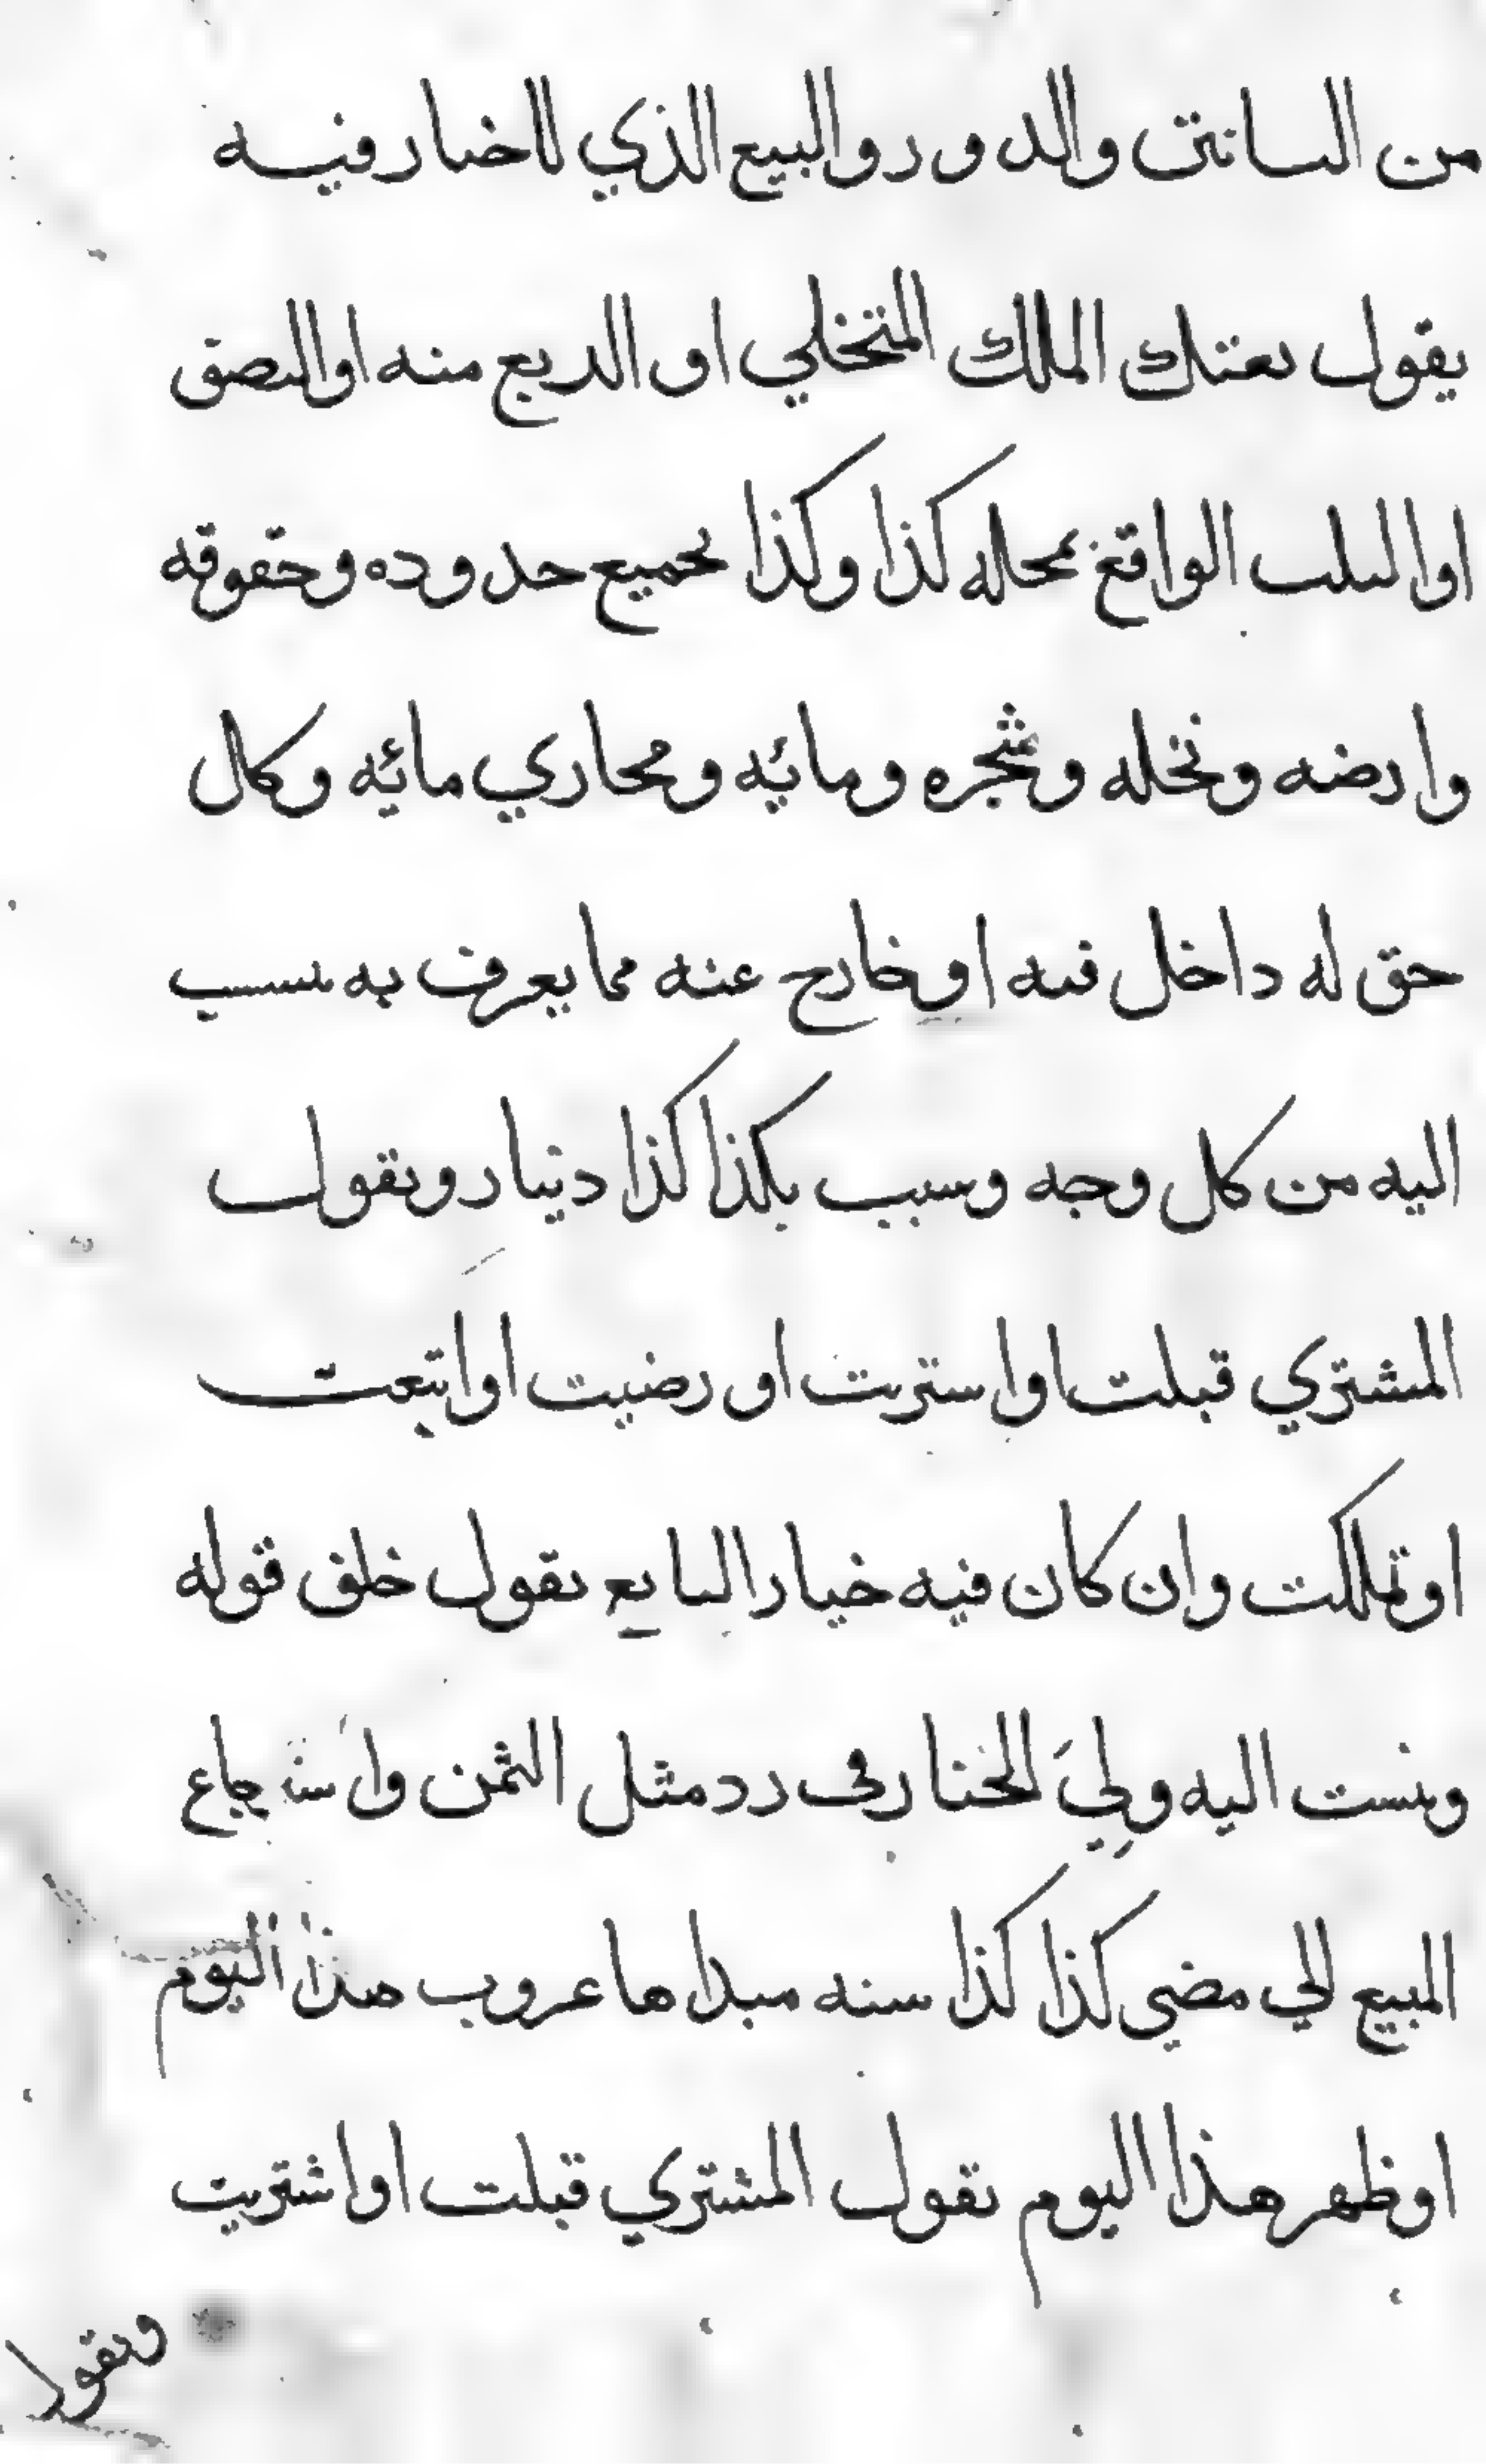 من البساتين والدور والبيع الذي لاخيار فيه
يقول بعتك الملك المتخلي او الربع منه او النصف
او الثلث الواقع بمحله كذا وكذا بجميع حدوده وحقوقه
وارضه ونخله وشجره ومائه ومجاري مائه وكال
حق له داخل فيه او خارج عنه مما يعرف به ينسب
اليه من كل وجه وسبب بكذا كذا دينار ويقول
المشتري قبلت او استريت او رضيت او ابتعت
او تملكت وان كان فيه خيار البايع يقول خلف قوله
وينسب اليه ولِيَ الخيار في رد مثل الثمن واسترجاع
المبيع الي مضي كذا كذا سنه مبداها غروب هذا اليوم
او ظهر هذا اليوم يقول المشتري قبلت او اشتريت
ويقول